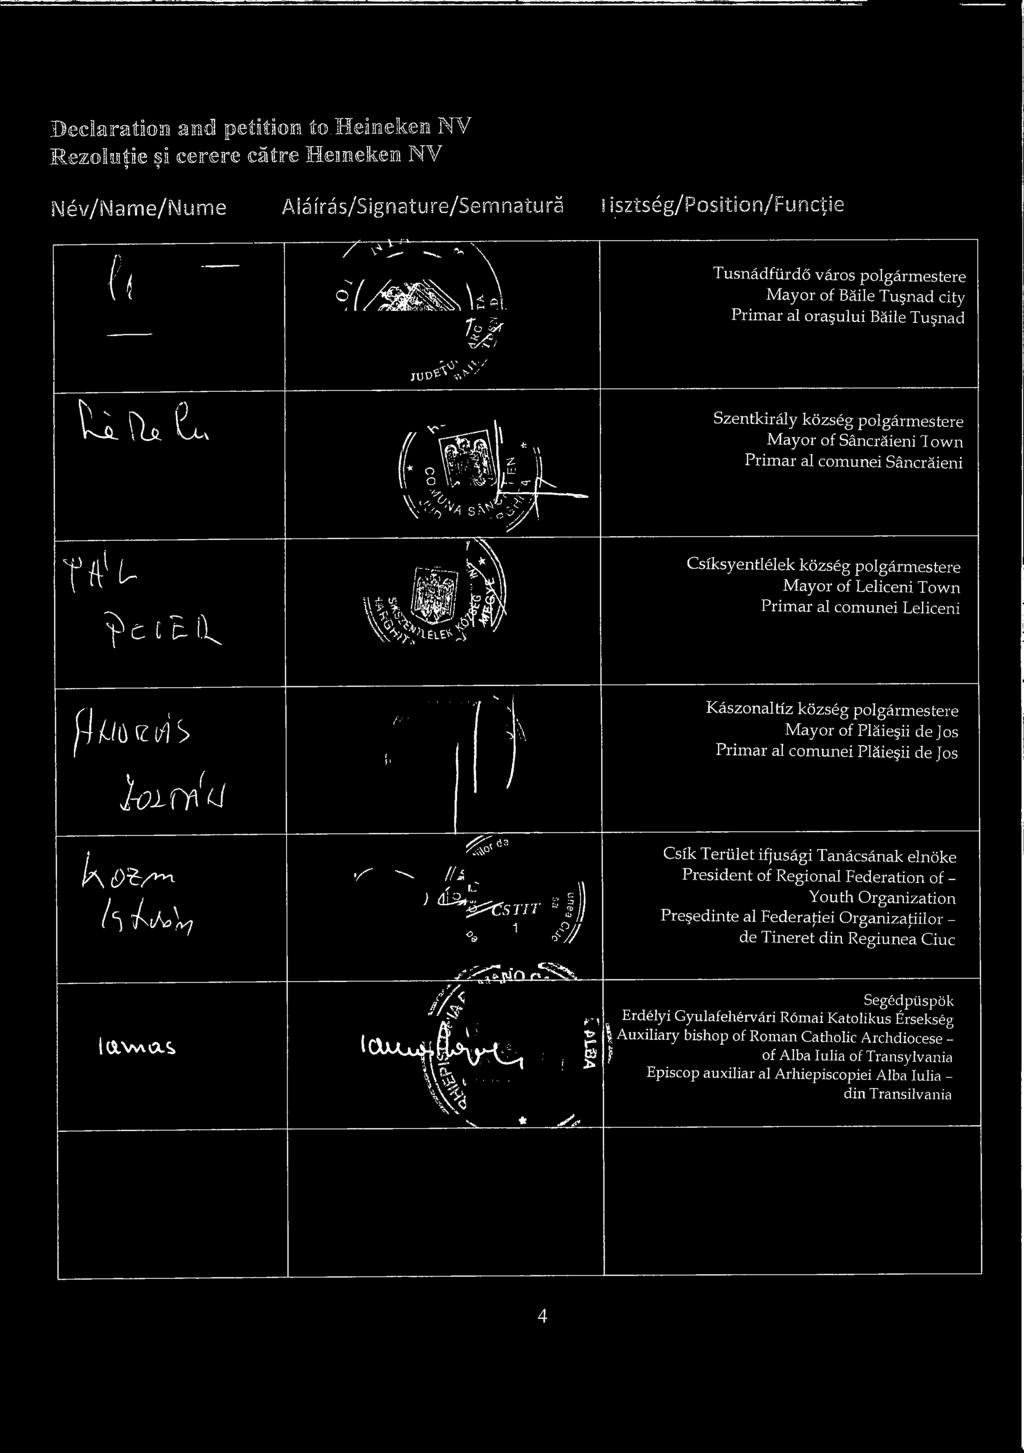 Declaration and petition to Heineken NV
Rezoluție și cerere către Heineken NV
Név/Name/Nume Aláírás/Signature/Semnatură Tisztség/Position/Funcție
Tusnádfürdő város polgármestere
Mayor of Băile Tuşnad city
Primar al oraşului Băile Tuşnad
JUDEȚU
Szentkirály község polgármestere
Mayor of Sâncrăieni Town
Primar al comunei Sâncrăieni
COMUNA
PÁL
PETER
Csíksyentlélek község polgármestere
Mayor of Leliceni Town
Primar al comunei Leliceni
KÖZSÉG
MEGYE
ANDRÁS
ZOLTÁN
Kászonaltíz község polgármestere
Mayor of Plăieşii de Jos
Primar al comunei Plăieşii de Jos
István
CSTIT
1
Csík Terület ifjusági Tanácsának elnöke
President of Regional Federation of –
Youth Organization
Preşedinte al Federaţiei Organizaţiilor –
de Tineret din Regiunea Ciuc
Tamas
ALBA
Segédpüspök
Erdélyi Gyulafehérvári Római Katolikus Érsekség
Auxiliary bishop of Roman Catholic Archdiocese –
of Alba Iulia of Transylvania
Episcop auxiliar al Arhiepiscopiei Alba Iulia –
din Transilvania
4